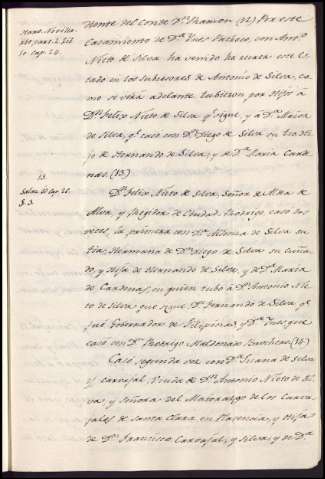 Haro. Nobilia
rio, part. 2. Lib
5. Cap. 24.
13
Salaz. lib. Cap. 20.
§. 3.
Monte del Conde Dn. Ramon (12) Por este
Casamiento de Dn. Luis Pacheco, con
Nieto de Silva ha venido ha recaer este
tado en los subcesores de Antonio de Silva, co
mo se verá adelante tubieron por Hijo á
Dn. Felix Nieto de Silva qe. sigue, y á Da. Maior
de Silva, qe. casó con Dn. Diego de Silva su tio hi
jo de Hernando de Silva, y de Da. Maria Carde
nas. (13)
Dn. Felix Nieto de Silva, Señor de Villa de
Alva, y Regidor de Ciudad Rodrigo, casó dos
veces, la primera con Da. de Silva su
tia, Hermana de Dn. Diego de Silva su cuña
do, y Hija de Hernando de Silva, y de Da. Maria
de Cardenas, en quien tubo á Dn. Antonio Nie
to de Silva que sigue, Dn. Fernando de Silva qe.
fué Governador de Filipinas, y Da. Ines que
casó con Dn. Rodrigo Maldonado (14)
Casó segunda vez con Da. Juana de Silva
y Carvajal, Viuda de Dn. Antonio Nieto de Sil
va, y Señora del Maiorazgo de los Carva
jales de Santa Clara en Plasencia, y Hija
de Dn. Francisco Carvajal, y Silva, y de Da.